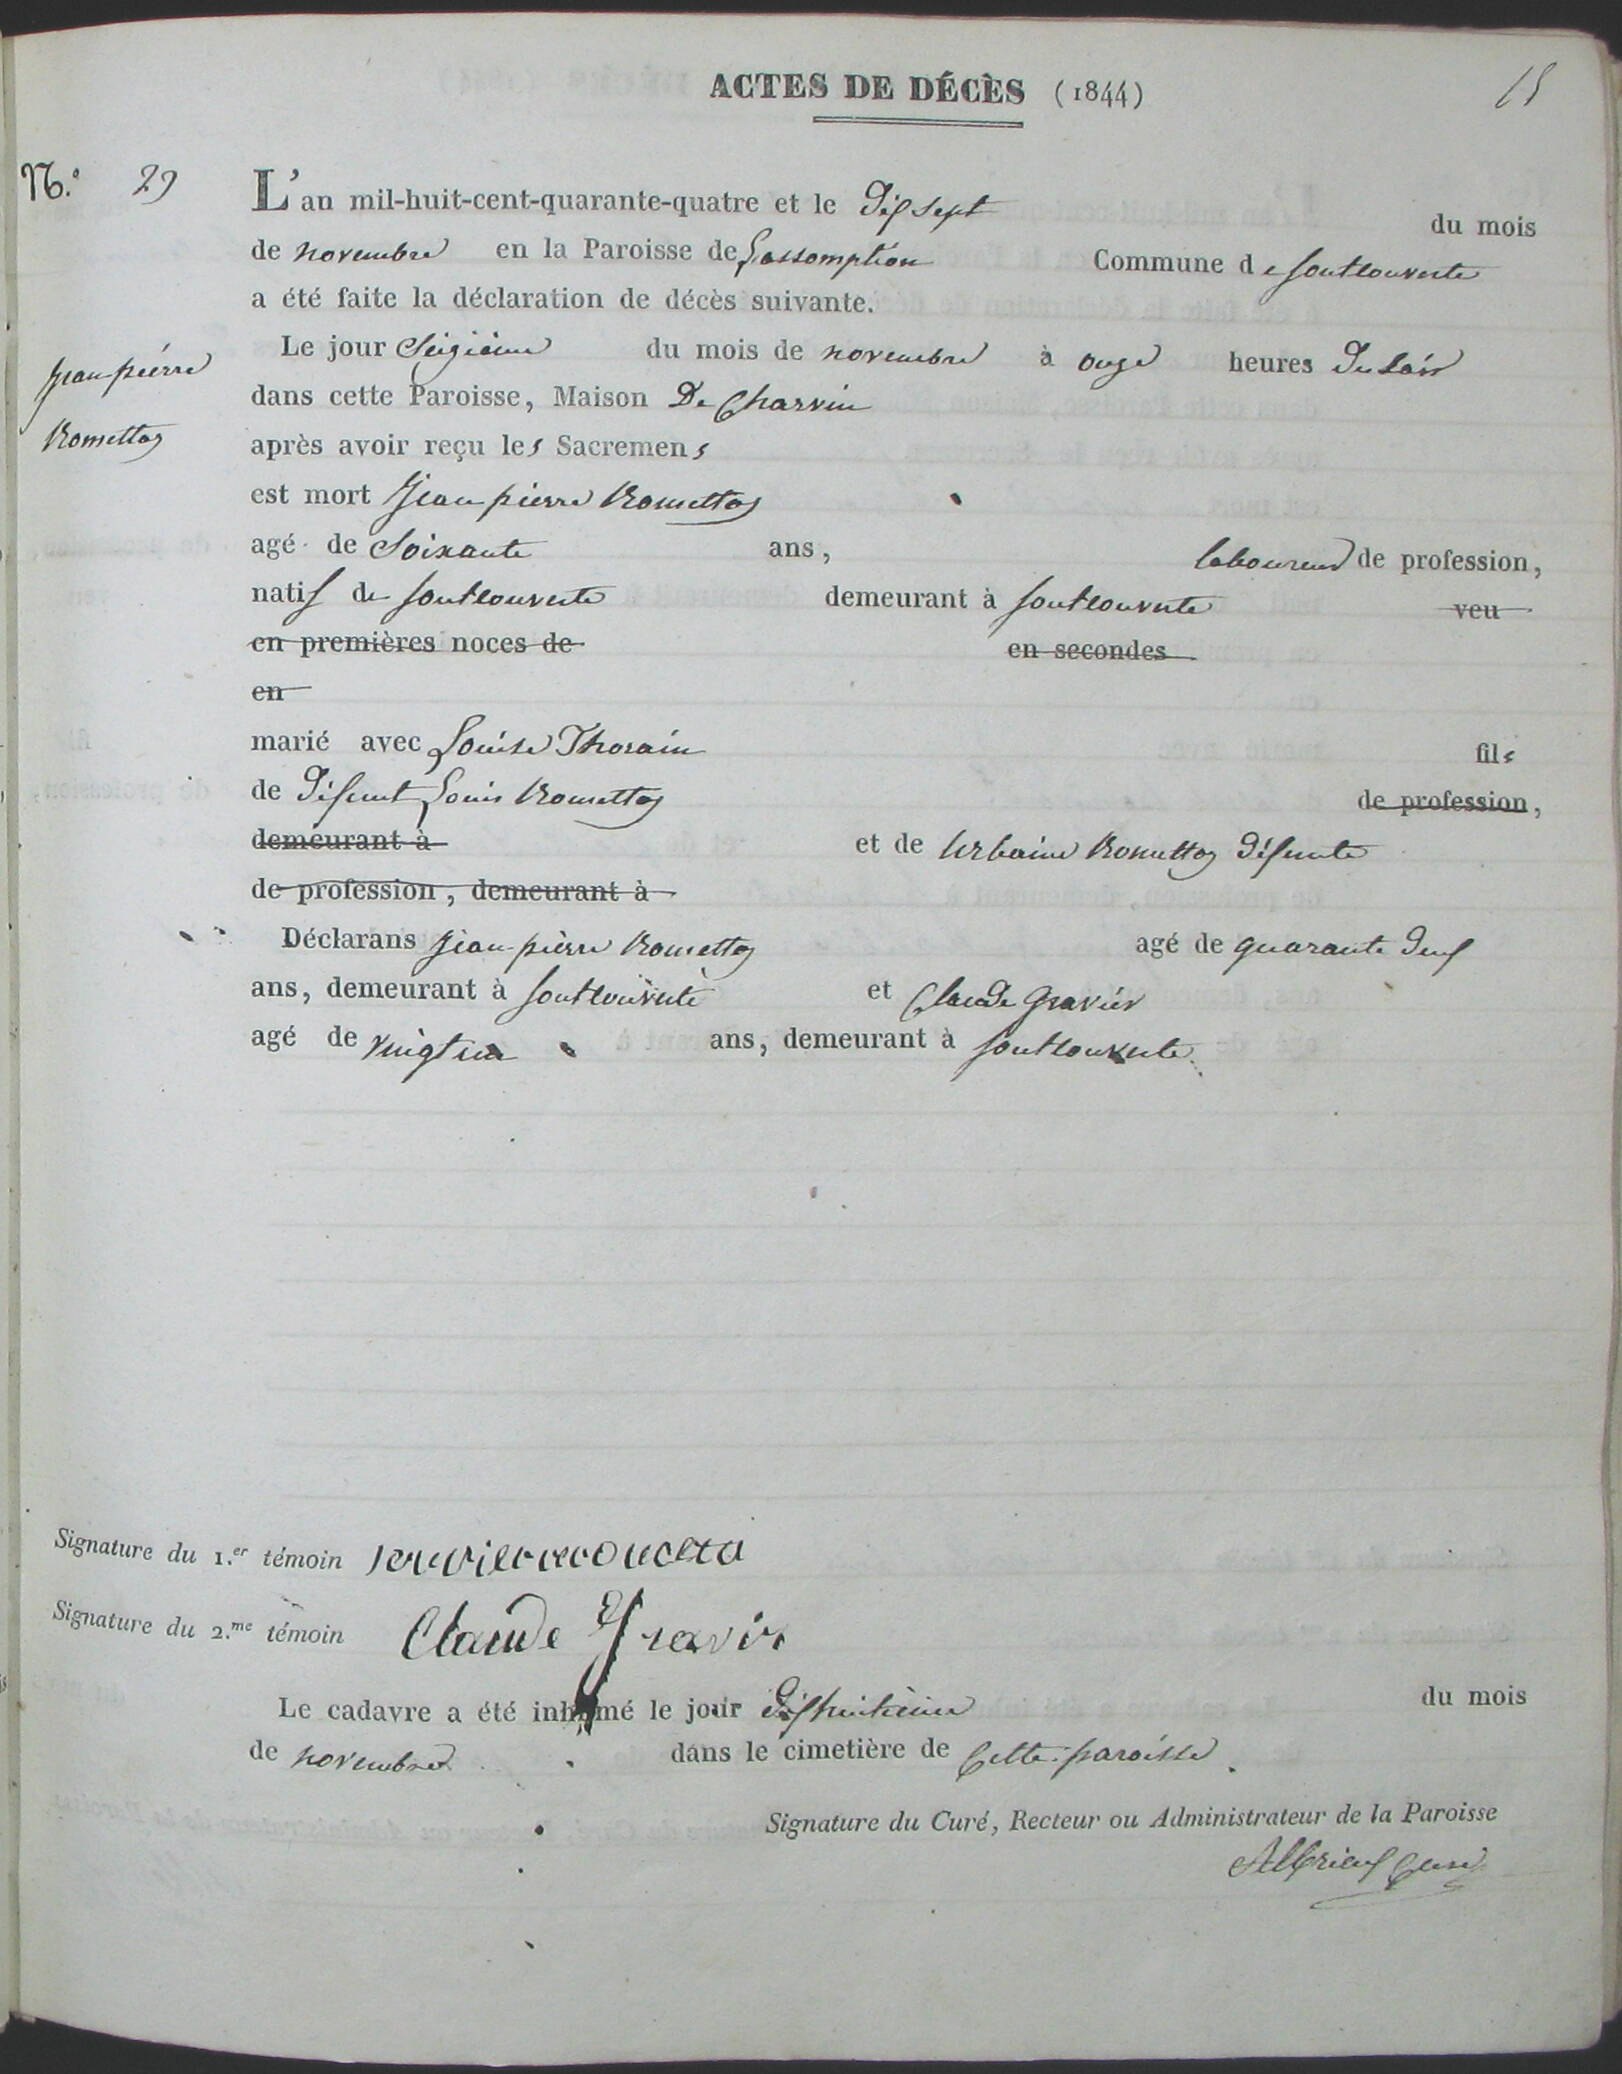 ACTES DE DÉCÈS (1844)
15
N.° 29
L'an mil-huit-cent-quarante-quatre et le dix sept du mois
de novembre en la Paroisse de Lassomption Commune de Fontcouverte
a été faite la déclaration de décès suivante.
Le jour Seizième du mois de novembre à onze heures du soir
Jean pierre
dans cette Paroisse, Maison De Charvin
Romettaz
après avoir reçu les Sacremens
est mort Jean pierre Romettaz
agé de Soixante ans, laboureur de profession,
natif de fontcouverte demeurant à fontcouverte veu
en premières noces de en secondes
en
marié avec Louise Thorain fils
de défunt Louis Romettaz de profession,
demeurant à et de Urbaine Romettaz défunte
de profession, demeurant à
Déclarans Jean-pierre Romettaz agé de quarante deux
ans, demeurant à fontcouverte et Claude Gravier
agé de vingt six ans, demeurant à fontcouverte
Signature du 1.er témoin
Signature du 2.me témoin Claude Gravier
Le cadavre a été inhumé le jour dixhuitième du mois
de novembre dans le cimetière de Cette paroisse.
Signature du Curé, Recteur ou Administrateur de la Paroisse
Albrieux Curé